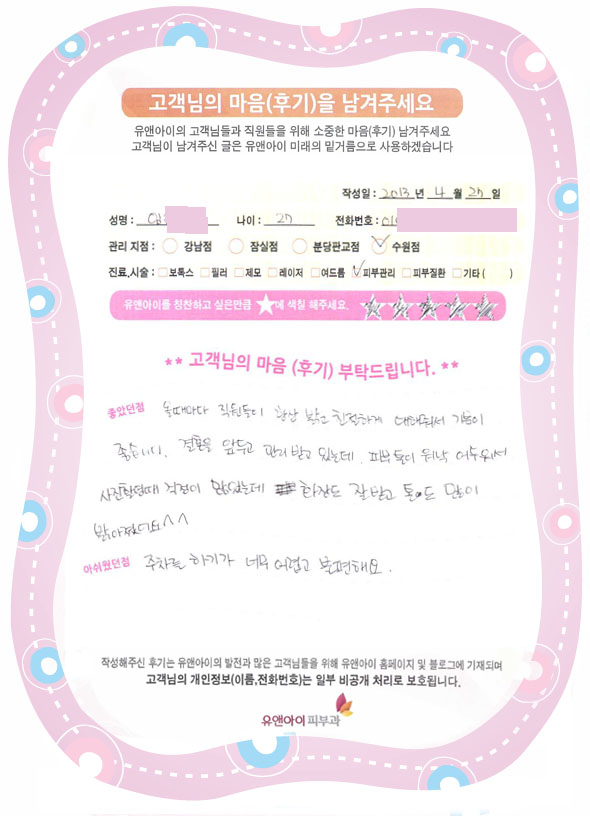 고객님의 마음(후기)을 남겨주세요
유앤아이의 고객님들과 직원들을 위해 소중한 마음(후기) 남겨주세요
고객님이 남겨주신 글은 유앤아이 미래의 밑거름으로 사용하겠습니다
작성일 : 2013 년 4 월 25 일
성명 : 나이 : 27 전화번호 : 010
관리 지점 : 강남점 잠실점 분당판교점 수원점
진료,시술 : 보톡스 필러 제모 레이저 여드름 피부관리 피부질환 기타 ( )
유앤아이를 칭찬하고 싶은만큼 ★에 색칠 해주세요.
** 고객님의 마음 (후기) 부탁드립니다. **
좋았던점 올때마다 직원들이 항상 밝고 친절하게 대해줘서 기분이
좋습니다. 결혼을 앞두고 관리 받고 있는데. 피부톤이 워낙 어두워서
사진촬영때 걱정이 많았는데 화장도 잘 받고 톤도 많이
밝아졌어요^^
아쉬웠던점 주차를 하기가 너무 어렵고 불편해요.
작성해주신 후기는 유앤아이의 발전과 많은 고객님들을 위해 유앤아이 홈페이지 및 블로그에 기재되며
고객님의 개인정보(이름,전화번호)는 일부 비공개 처리로 보호됩니다.
유앤아이피부과